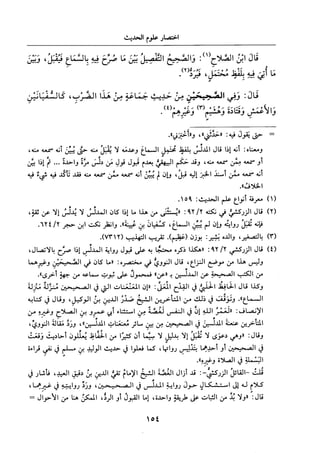 اختصار علوم الحديث
قال ابنُ الصَّلاحِ(١): وَالصَّحِيحُ التَّفْصِيلُ بَيْنَ مَا صُرِّحَ فِيهِ بِالسَّمَاعِ فَيُقْبَلُ، وَبَيْنَ
مَا أُتِيَ فِيهِ بِلَفْظٍ مُحْتَمَلٍ، فَيُرَدُّ(٢).
قَالَ: وَفِي الصَّحِيحَيْنِ مِنْ حَدِيثِ جَمَاعَةٍ مِنْ هَذَا الضَّرْبِ، كَالسُّفْيَانَيْنِ
وَالأَعْمَشِ وَقَتَادَةَ وَهُشَيْمٍ(٣) وَغَيْرِهِمْ(٤).
= حتى يقول فيه: «حدثني»، و«أخبرني».
ومعناه: أنه إذا قال المدلس بلفظ محتمل السماع وعدمه لا يُقبل منه حتى يُبين أنه سمعه منه،
أو سمعه ممن سمعه منه، وقد حكم البيهقي بعدم قبول قول من دلس مرة واحدة... ثم إذا بين
أنه سمعه ممن أسند الخبر إليه قُبل، وإن لم يُبين أنه سمعه ممن سمعه منه فقد تأكد فيه شيء فيه
الخلاف.
(١) معرفة أنواع علم الحديث: ١٥٩.
(٢) قال الزركشي في نكته ٩٢/٢: «يُستثنى من هذا ما إذا كان المدلس لا يُدلس إلا عن ثقة،
فإنه تُقبل روايته وإن لم يُبين السماع، كسفيان بن عيينة». وانظر نكت ابن حجر ٦٢٤/٢.
(٣) بالتصغير، والده بَشير: بوزن (عظيم). تقريب التهذيب (٧٣١٢).
(٤) قال الزركشي ٩٢/٢: «هكذا ذكره محتجًا به على قبول رواية المدلس إذا صرح بالاتصال،
وليس هذا من موضع النزاع، قال النووي في مختصره: «ما كان في الصحيحين وغيرهما
من الكتب الصحيحة عن المدلسين بـ«عن» فمحمول على ثبوت سماعه من جهة أخرى».
وكذا قال الحافظ الحلبي في القدح المعلى: «إن المعنعنات التي في الصحيحين مُنزَّلة منزلة
السماع». وتوقف في ذلك من المتأخرين الشيخ صدر الدين بن الوكيل، وقال في كتابه
الإنصاف: «لعمر الله إن في النفس لغصة من استثناء أبي عمرو بن الصلاح وغيره من
المتأخرين عنعنة المدلسين في الصحيحين من بين سائر معنعنات المدلسين»، وردَّ مقالة النووي،
وقال: «وهي دعوى لا تُقبل إلا بدليل لا سيما أن كثيرًا من الحفاظ يُعللون أحاديث وقعت
في الصحيحين أو أحدهما بتدليس رواتها، كما فعلوا في حديث الوليد بن مسلم في نفي قراءة
البسملة في الصلاة وغيره».
قلت -القائل الزركشي-: قد أزال الغصة الشيخ الإمام تقي الدين بن دقيق العيد، فأشار في
كلام له إلى استشكال حول رواية المدلس في الصحيحين، وردِّ روايته في غيرهما،
قال: «ولا بُدَّ من الثبات على طريقة واحدة، إما القبول أو الرد، الممكن هنا من الأحوال =
١٥٤